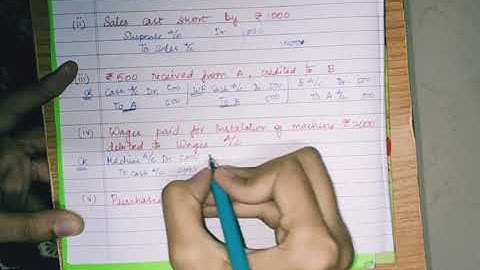 (ii) Sales cast short by ₹1000
Suspense A/c Dr. 1000
To Sales A/c 1000
(iii) ₹500 received from A, credited to B
CR Cash A/c Dr. 500 WR Cash A/c Dr. 500 B A/c Dr. 500
To A 500 To B 500 To A A/c 500
(iv) Wages paid for Installation of machine
debited to Wages A/c
CR Machine A/c Dr.
To Cash A/c
(v) Purchases